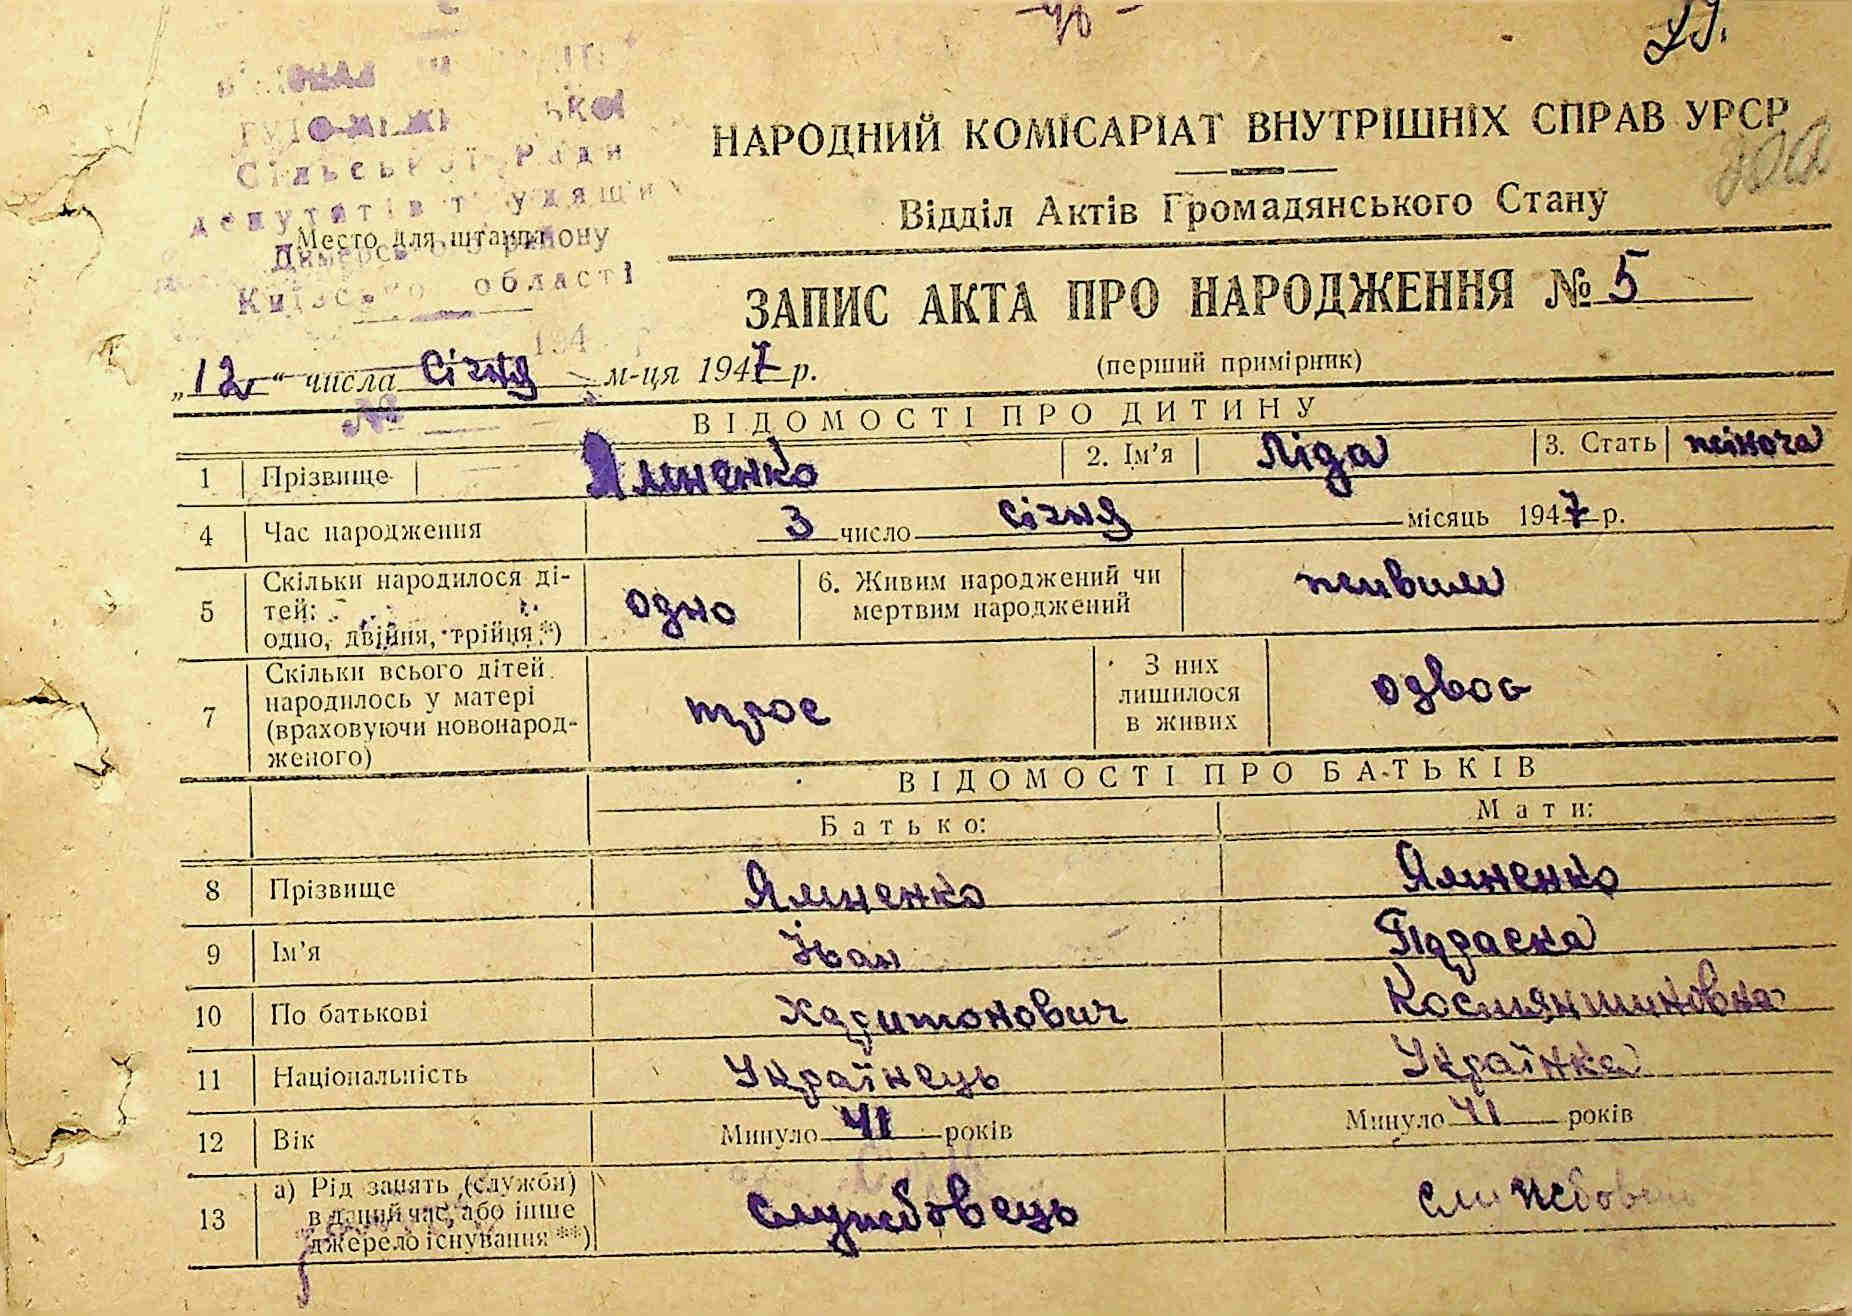 29.
НАРОДНИЙ КОМІСАРІАТ ВНУТРІШНІХ СПРАВ УРСР
Відділ Актів Громадянського Стану
Сільської Ради
депутатів трудящих
Место для штампа
Димерського району
Київської області
ЗАПИС АКТА ПРО НАРОДЖЕННЯ № 5
„12“ числа січня м-ця 1947 р. (перший примірник)
№
ВІДОМОСТІ ПРО ДИТИНУ
1 Прізвище Яміненко 2. Ім'я Ліда 3. Стать жіноча
4 Час народження 3 число січня місяць 1947 р.
5 Скільки народилося ді-
тей:
одно, двійня, трійця *) одно 6. Живим народжений чи
мертвим народжений живим
7 Скільки всього дітей
народилось у матері
(враховуючи новонарод-
женого) троє З них
лишилося
в живих
ВІДОМОСТІ ПРО БАТЬКІВ
Батько: Мати:
8 Прізвище Яміненко Яміненко
9 Ім'я Іван
10 По батькові Харитонович
11 Національність Українець Українка
12 Вік Минуло 41 років Минуло 41 років
13 а) Рід занять (служби)
в даний час, або інше
джерело існування **) службовець